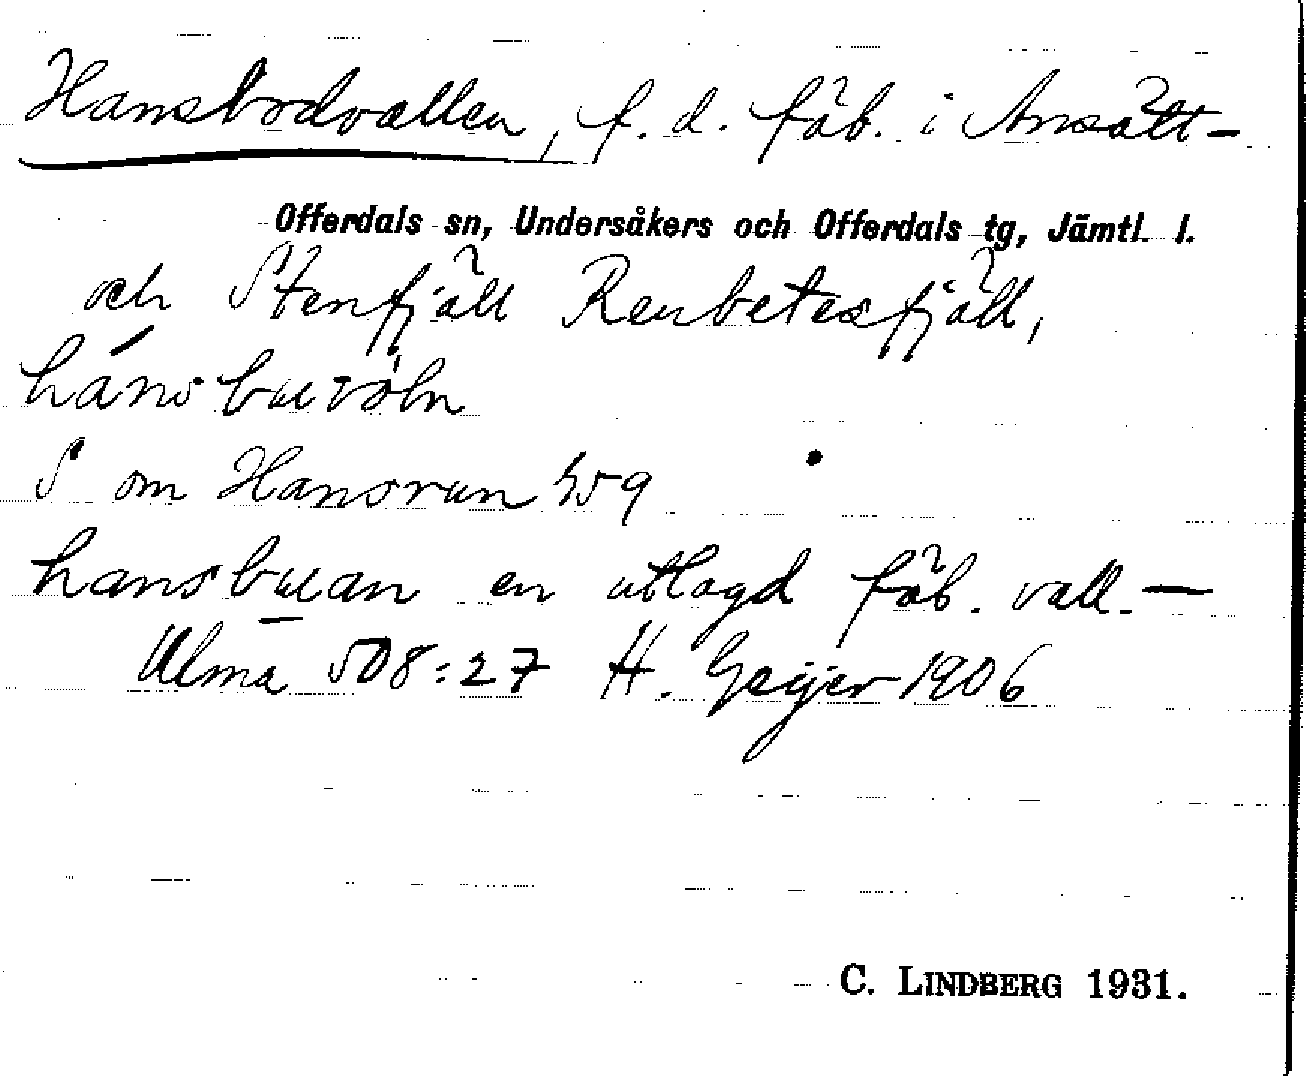 Hansbodvallen, f. d. fäb. i Ansätt-
Offerdals sn, Undersåkers och Offerdals tg, Jämtl. l.
och Stenfjäll Renbetesfjäll,
hánsbuvöln
S om Hansrun 459
hansbuan en utlagd fäb. vall. —
Ulma 508:27 H. Geijer 1906
C. LINDBERG 1931.